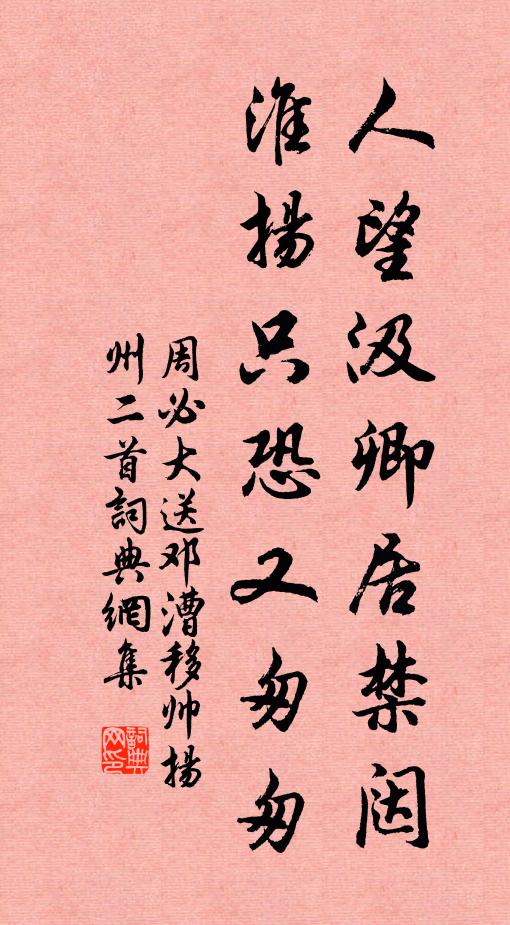 人望汲卿居禁闼
淮揚只恐又匆匆
周必大送邓漕移帅揚
州二首詞典網集
詞典网印